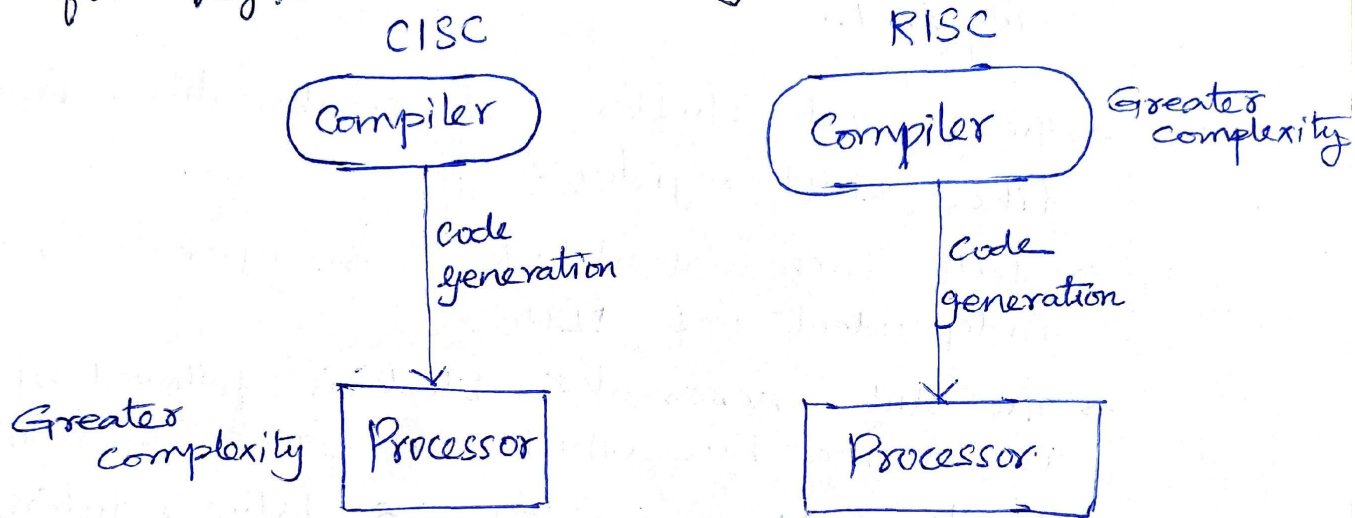 CISC
Compiler
code
generation
Greater
complexity
Processor
RISC
Compiler
Greater
complexity
Code
generation
Processor